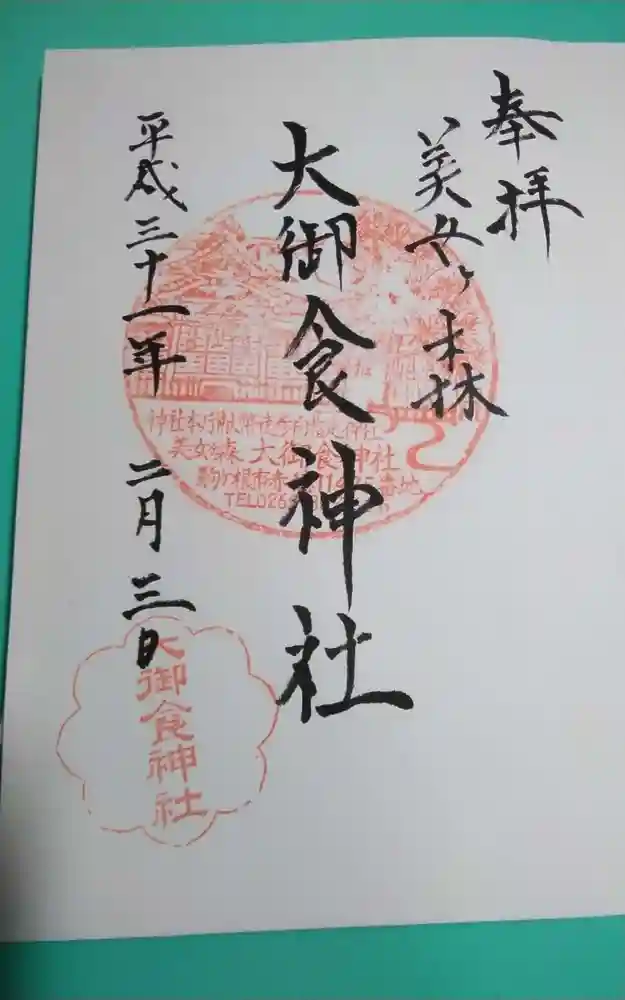 奉拝
美女ヶ森
大御食神社
平成三十一年 二月 三日
美女ヶ森 大御食神社
駒ヶ根市赤
TEL026
大御食神社